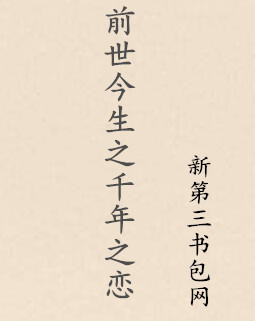 前世今生之千年之恋
新第三书包网